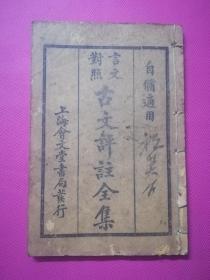 自修適用
言文對照
古文評註全集
上海會文堂書局發行